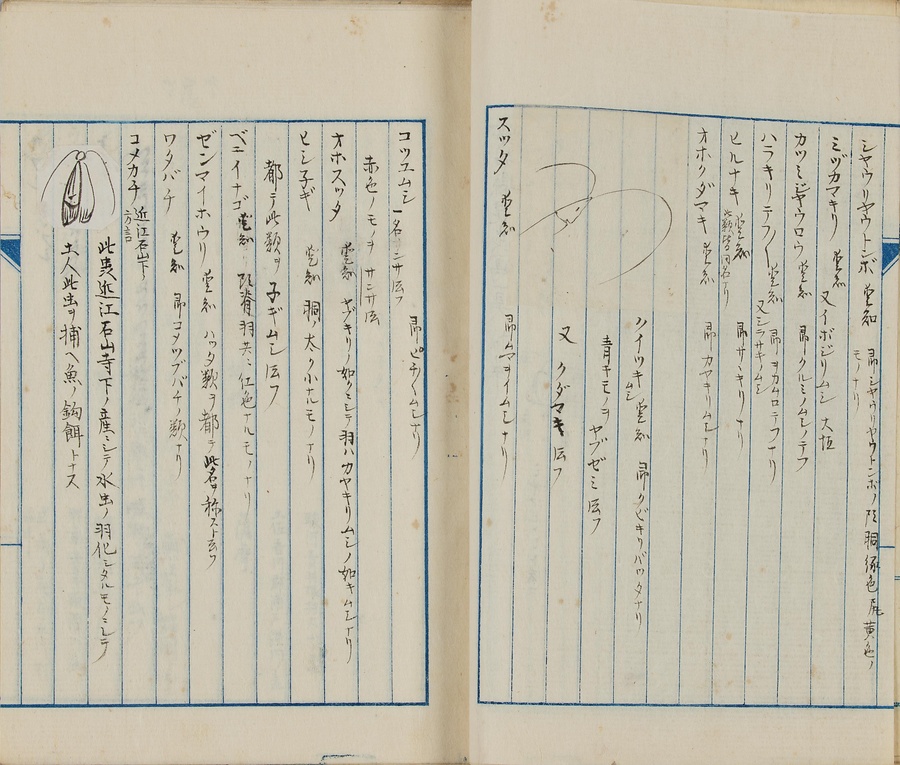 シヤウリヤウトンボ 愛知 即シヤウリヤウトンボノ陸胴緑色尾黄色ノ
モノナリ
ミヅカマキリ 愛知 又イボジリムシ 大垣
カツミジヤウロウ 愛知 即クルミノムシノテフ
ハラキリテフ 愛知 即ヲカムロテフナリ
又シラサギムシ
ヒルナキ 愛知 即サヽキリナリ
オホクダマキ 愛知 即カヤキリムシナリ
ハイツキムシ 愛知 即クビキリバツタナリ
青キモノヲヤブゼミ云フ
又クダマキ云フ
スツタ 愛知 即ムマヲイムシナリ
コツユムシ 一名ンサ云フ 即ピチクムシナリ
赤色ノモノヲサンサ云
オホスツタ 愛知 ヤブキリノ如クシテ羽ハカヤキリムシノ如キムシナリ
ヒシ子ギ 愛知 胴ノ太ク小ナルモノナリ
都テ此類ヲ子ギムシ云フ
ベニイナゴ 愛知 陸脊羽共ニ紅色ナルモノナリ
ゼンマイホウリ 愛知 ハツタ類ヲ都テ此名ヲ称スト云フ
ワタバチ 愛知 即コメツブバチノ類ナリ
コメカチ 近江石山下ノ
方言
此虫近江石山寺下ノ産ニシテ水虫ノ羽化シタルモノニシテ
土人此虫ヲ捕ヘ魚ノ釣餌トナス